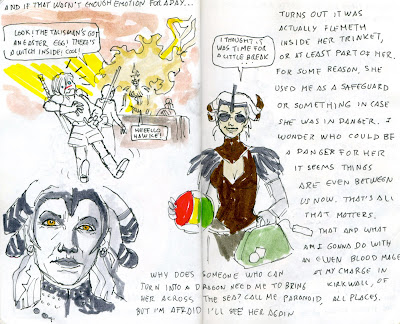 AND IF THAT WASN'T ENOUGH EMOTION FOR A DAY...
LOOK! THE TALISMAN'S GOT
AN EASTER EGG! THERE'S
A WITCH INSIDE! COOL!
HEEELLO
HAWKE!
I THOUGHT IT
WAS TIME FOR
A LITTLE BREAK
TURNS OUT IT WAS
ACTUALLY FLEMETH
INSIDE HER TRINKET,
OR AT LEAST PART OF HER.
FOR SOME REASON, SHE
USED ME AS A SAFEGUARD
OR SOMETHING IN CASE
SHE WAS IN DANGER. I
WONDER WHO COULD BE
A DANGER FOR HER
IT SEEMS THINGS
ARE EVEN BETWEEN
US NOW. THAT'S ALL
THAT MATTERS.
THAT AND WHAT
AM I GONNA DO WITH
AN ELVEN BLOOD MAGE
AT MY CHARGE IN
KIRKWALL, OF
ALL PLACES.
WHY DOES SOMEONE WHO CAN
TURN INTO A DRAGON NEED ME TO BRING
HER ACROSS THE SEA? CALL ME PARANOID,
BUT I'M AFRAID I'LL SEE HER AGAIN